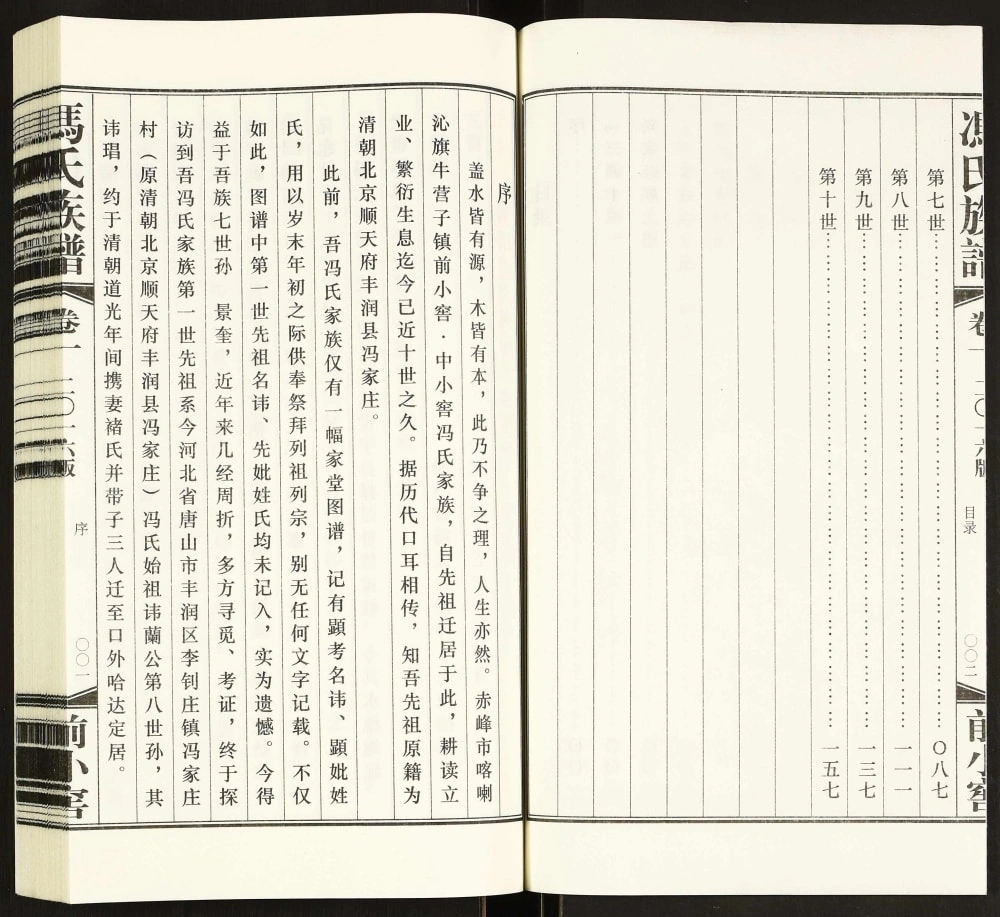 馮氏族譜
卷一
二〇一六版
目录
〇〇二
前小窖
第七世……〇八七
第八世……一一一
第九世……一三七
第十世……一五七
序
盖水皆有源，木皆有本，此乃不争之理，人生亦然。赤峰市喀喇
沁旗牛营子镇前小窖·中小窖冯氏家族，自先祖迁居于此，耕读立
业、繁衍生息迄今已近十世之久。据历代口耳相传，知吾先祖原籍为
清朝北京顺天府丰润县冯家庄。
此前，吾冯氏家族仅有一幅家堂图谱，记有顕考名讳、顕妣姓
氏，用以岁末年初之际供奉祭拜列祖列宗，别无任何文字记载。不仅
如此，图谱中第一世先祖名讳、先妣姓氏均未记入，实为遗憾。今得
益于吾族七世孙 景奎，近年来几经周折，多方寻觅、考证，终于探
访到吾冯氏家族第一世先祖系今河北省唐山市丰润区李钊庄镇冯家庄
村（原清朝北京顺天府丰润县冯家庄）冯氏始祖讳蘭公第八世孙，其
讳琩，约于清朝道光年间携妻褚氏并带子三人迁至口外哈达定居。
馮氏族譜
卷一
二〇一六版
序
〇〇一
前小窖